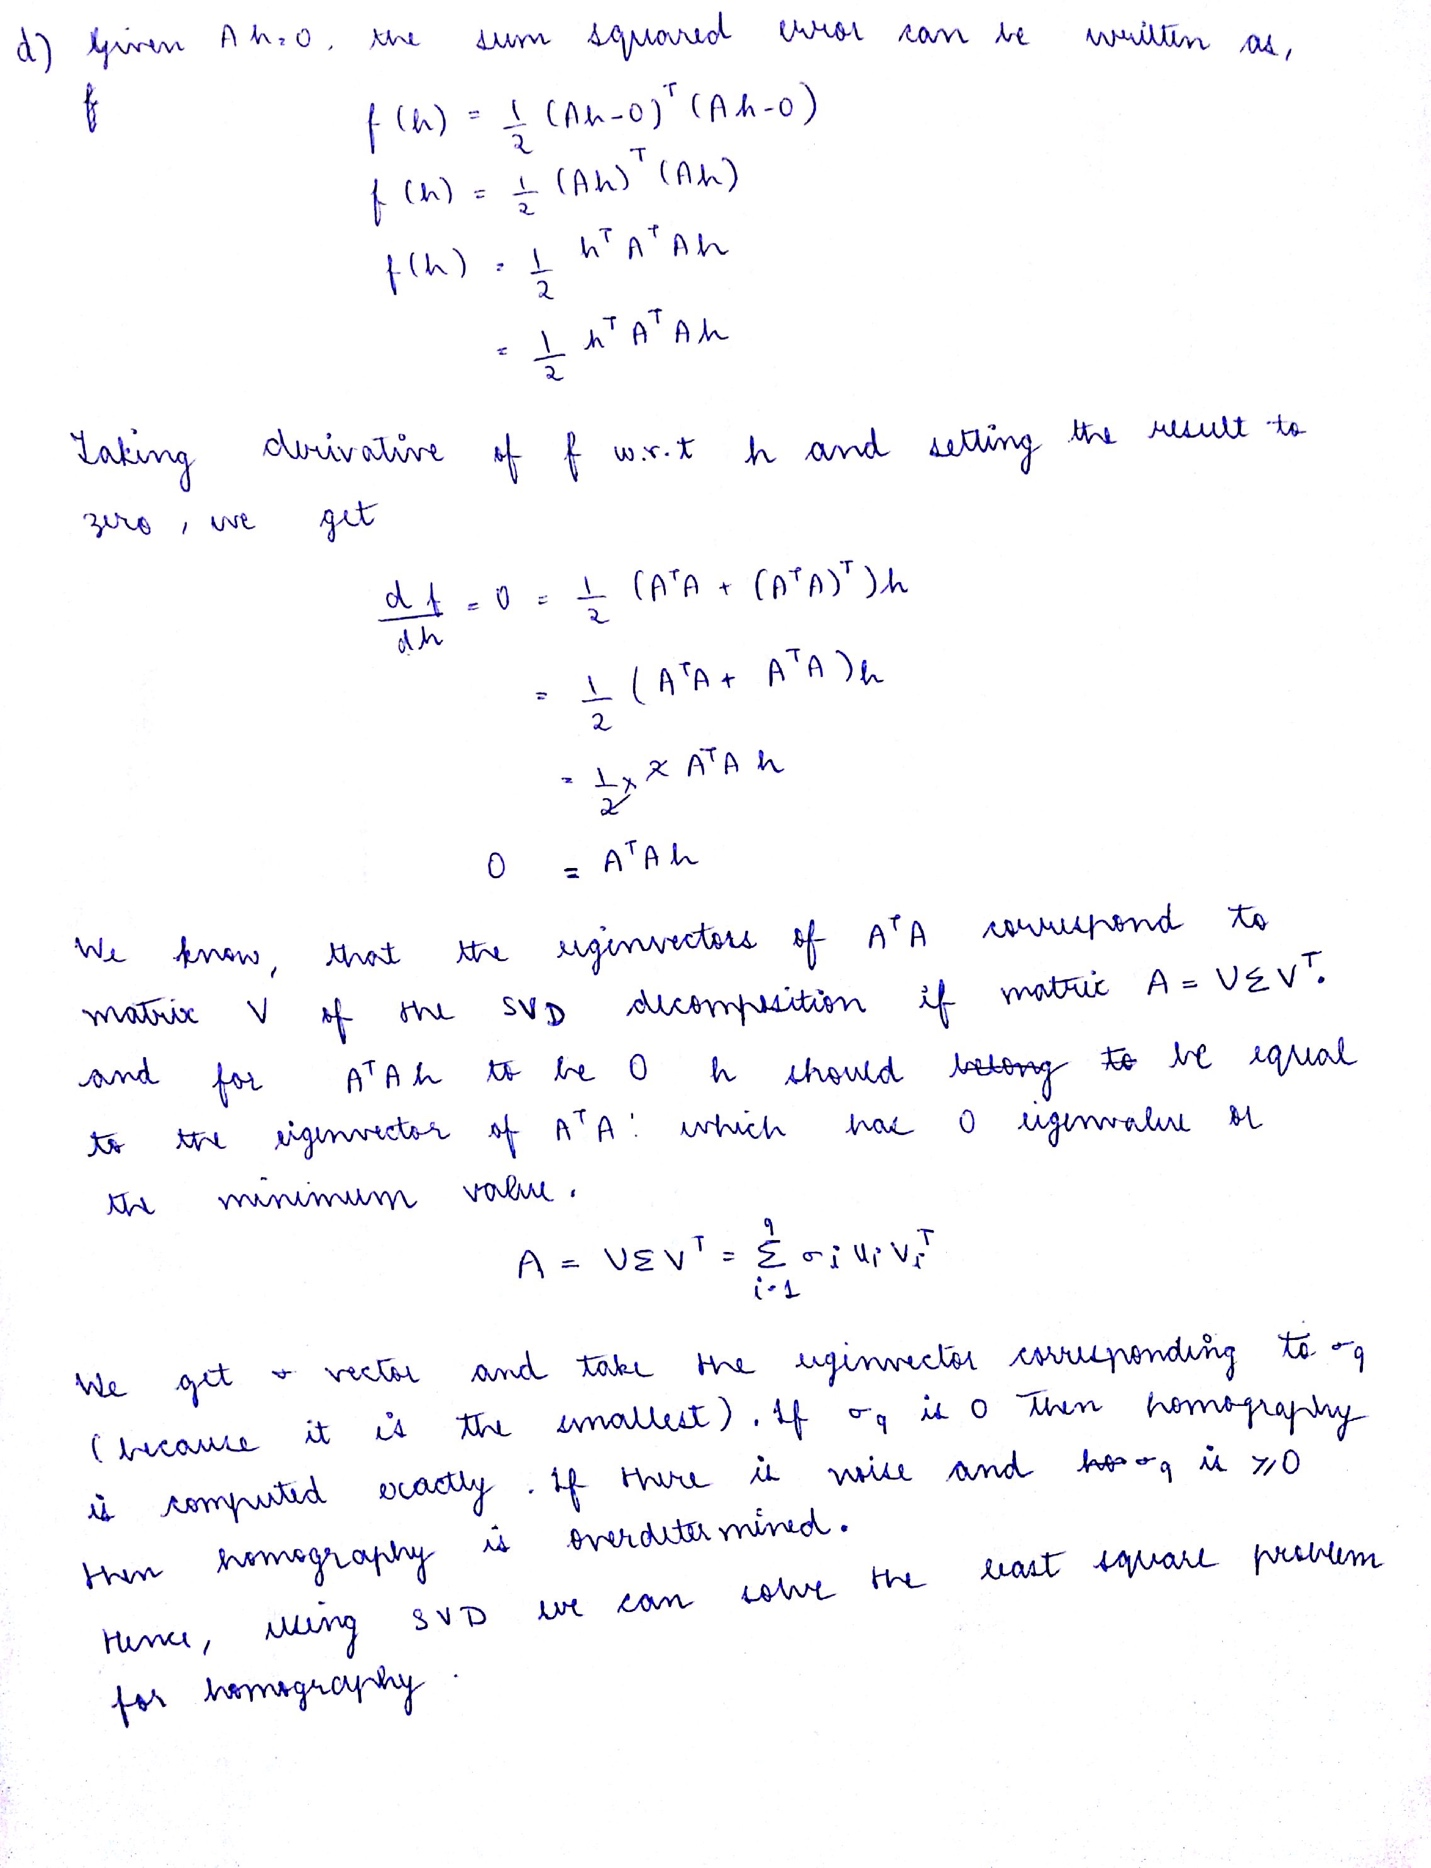 d) Given Ah=0, the sum squared error can be written as,
f
f(h) = 1/2 (Ah-0)^T (Ah-0)
f(h) = 1/2 (Ah)^T (Ah)
f(h) = 1/2 h^T A^T Ah
= 1/2 h^T A^T Ah
Taking derivative of f w.r.t h and setting the result to
zero, we get
df/dh = 0 = 1/2 (A^TA + (A^TA)^T)h
= 1/2 (A^TA + A^TA)h
= 1/2 x 2 A^TA h
0 = A^TAh
We know, that the eigenvectors of A^TA correspond to
matrix V of the SVD decomposition if matrix A = UΣV^T.
and for A^TAh to be 0 h should belong to be equal
to the eigenvector of A^TA: which has 0 eigenvalue or
the minimum value.
A = UΣV^T = Σ_{i=1}^{9} σi ui vi^T
We get vector and take the eigenvector corresponding to σ9
(because it is the smallest). If σ9 is 0 then homography
is computed exactly. If there is noise and σ9 is ≥0
then homography is overdetermined.
Hence, using SVD we can solve the least square problem
for homography.